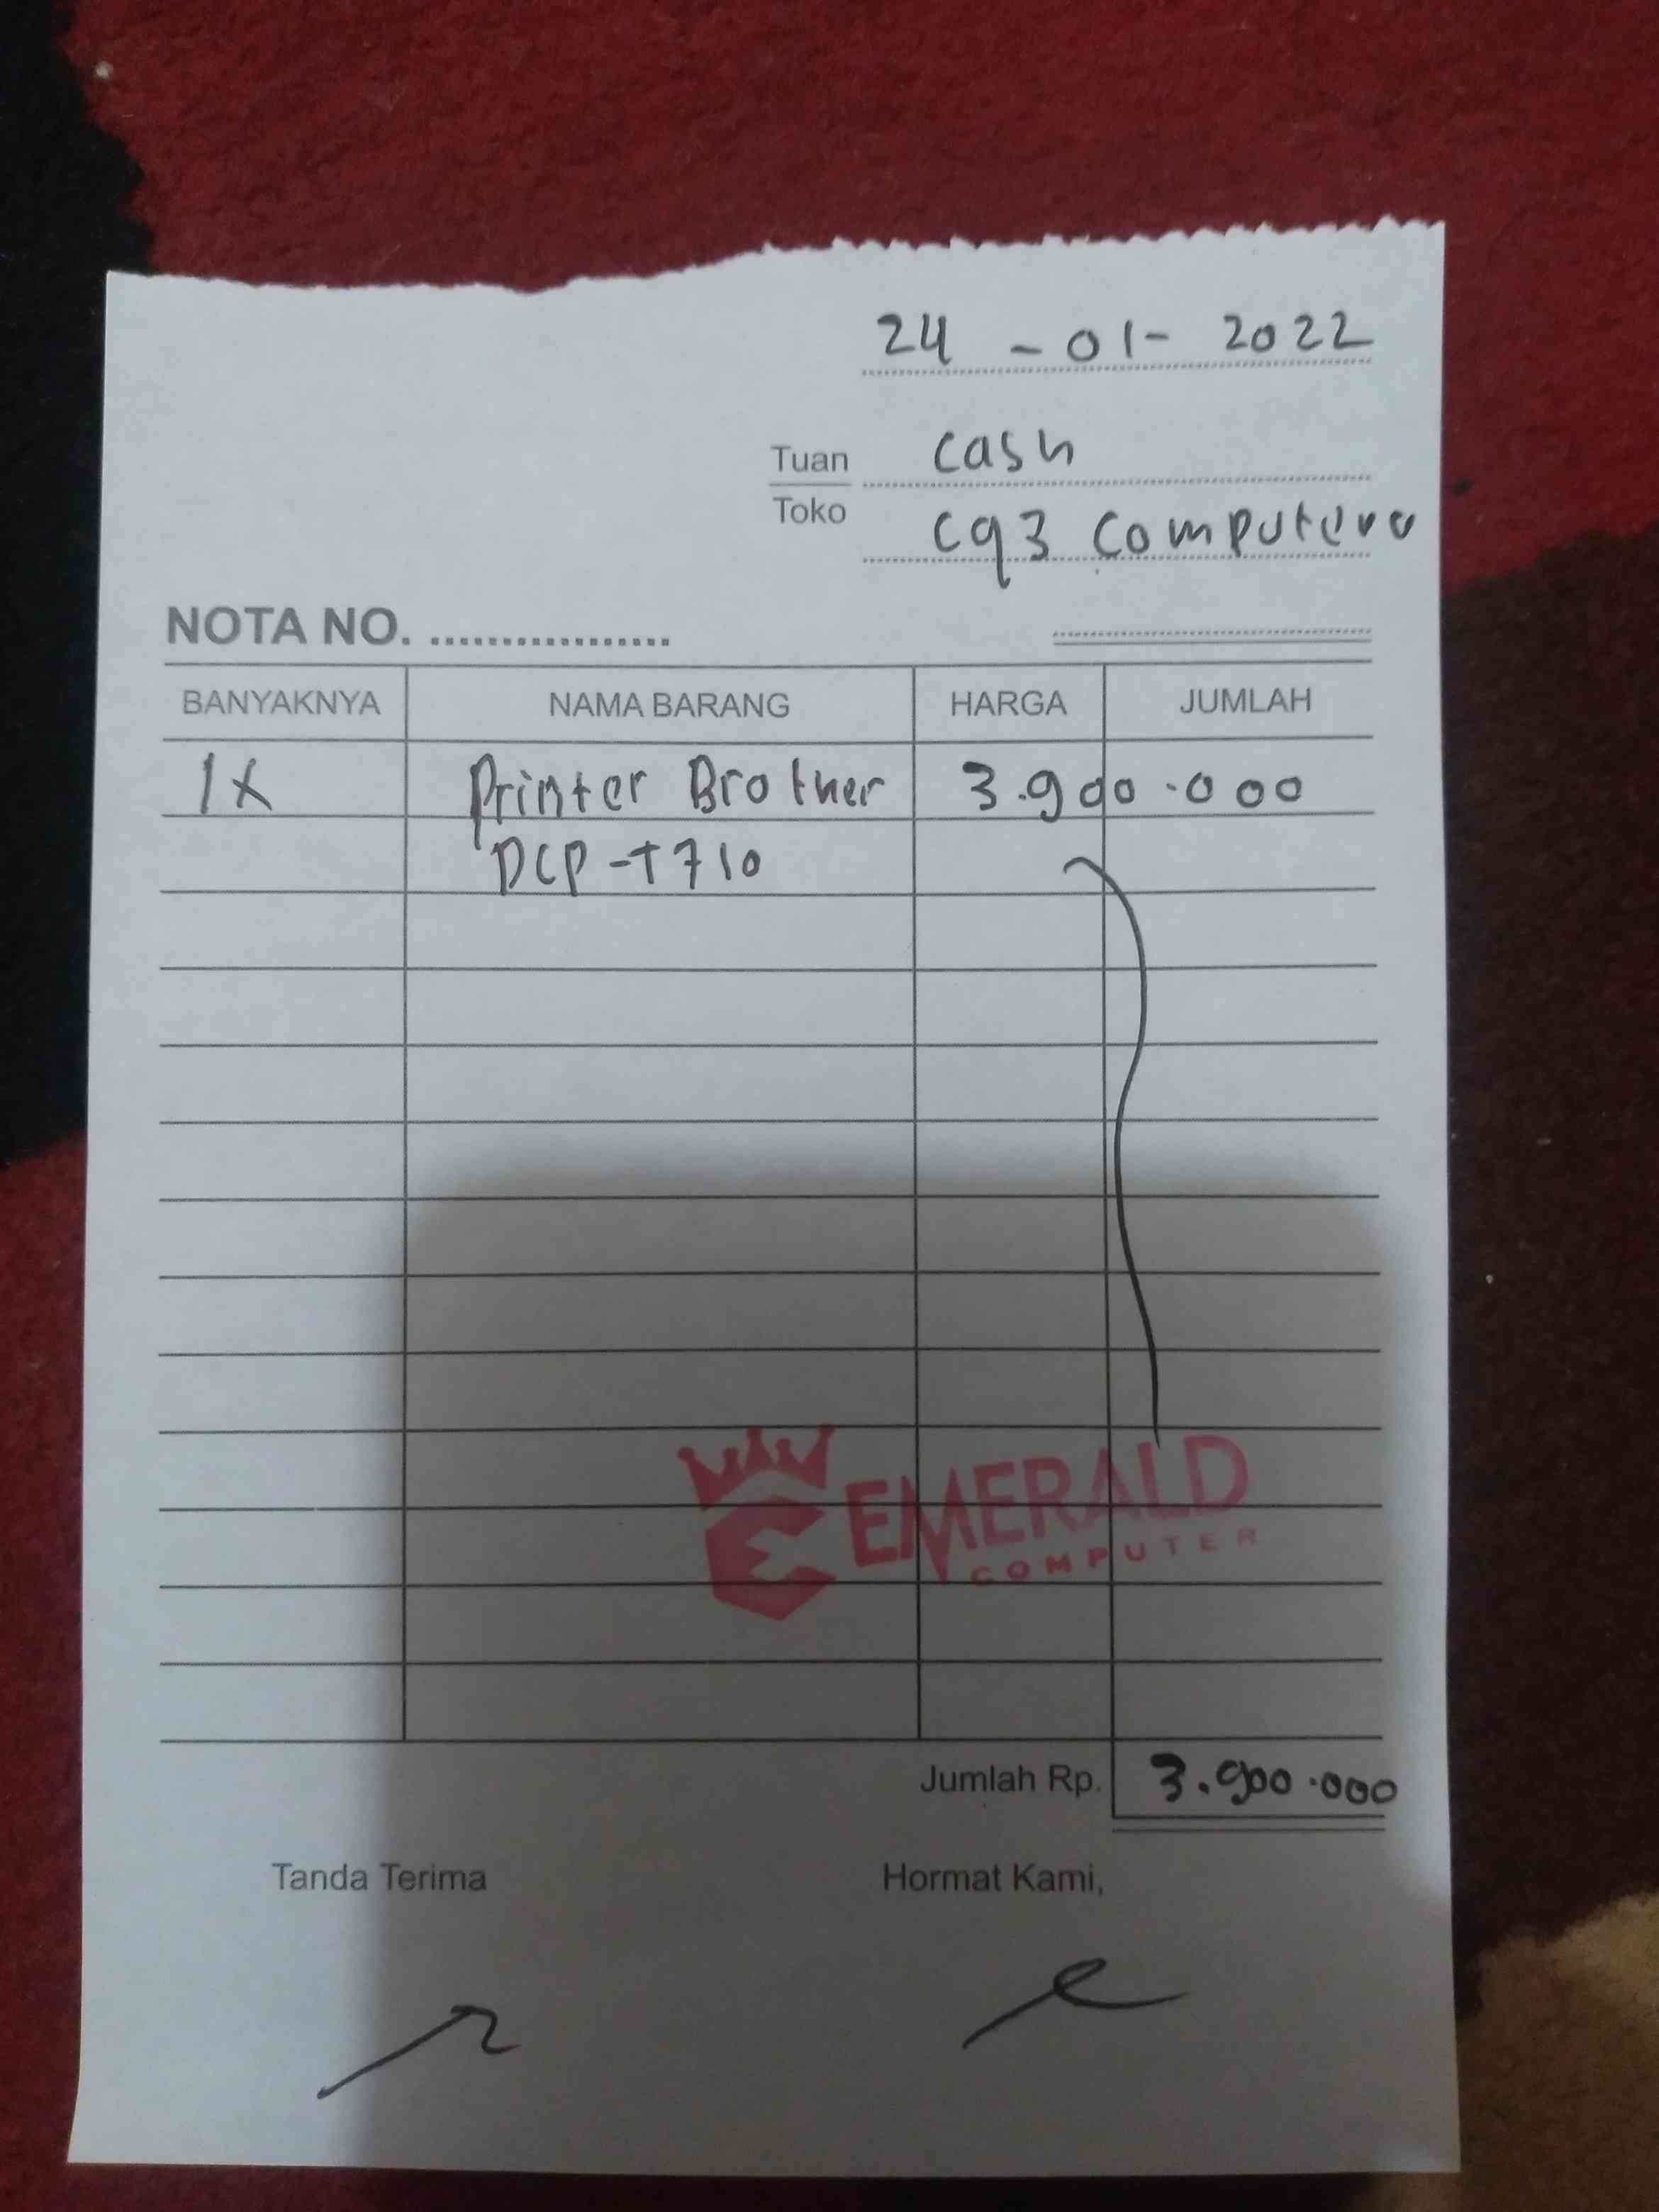 24 - 01 - 2022
Tuan cash
Toko cq3 computer
NOTA NO. ..................
BANYAKNYA NAMA BARANG HARGA JUMLAH
1x Printer Brother 3.900.000
DCP-T710
EMERALD
COMPUTER
Jumlah Rp. 3.900.000
Tanda Terima Hormat Kami,